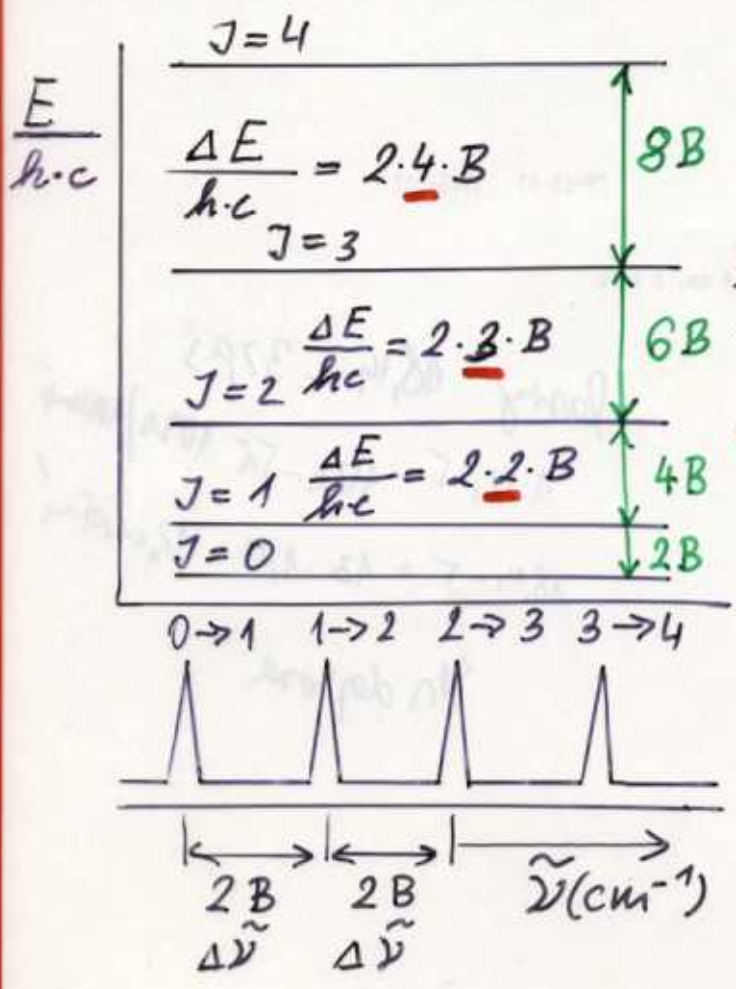 J = 4
E/h·c
ΔE/h·c = 2·4·B
8B
J = 3
ΔE/hc = 2·3·B
6B
J = 2
ΔE/hc = 2·2·B
4B
J = 1
J = 0
2B
0→1 1→2 2→3 3→4
2B 2B ṽ(cm⁻¹)
Δṽ Δṽ